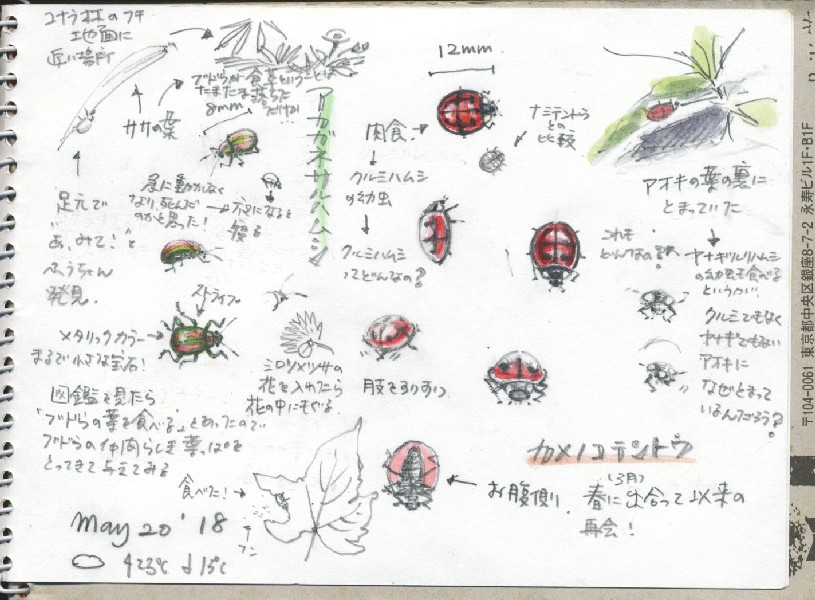 コナラ林のフチ
地面に
近い場所
ササの葉
ブドウが食草ということは
たまたま落ちた
だけか
8mm
アカガネサルハムシ
急に動かなく
なり、死んだ
のかと思った!
→夜になると
寝る
足元で
"あ、みて!"と
ふうちゃん
発見.
ストライプ
メタリックカラー
まるで小さな宝石!
ヒメジョオンの
花を入れたら
花の中にもぐる.
図鑑を見たら
「ブドウの葉を食べる」とあったので
ブドウの仲間らしき葉っぱを
とってきて与えてみる
食べた!
フン
May 20 '18
↑23℃ ↓15℃
12mm
肉食.
クルミハムシ
の幼虫
クルミハムシ
ってどんなの?
ナミテントウ
との
比較
アオキの葉の裏に
とまっていた
これも
どんなの?
ヤナギルリハムシ
の幼虫も食べる
というが!
クルミでもなく
ヤナギでもない
アオキに
なぜとまって
いるんだろう?
肢をすりすり
お腹側.
カメノコテントウ
(3月)
春に出合って以来の
再会!
〒104-0061 東京都中央区銀座8-7-2 永寿ビル1F・B1F